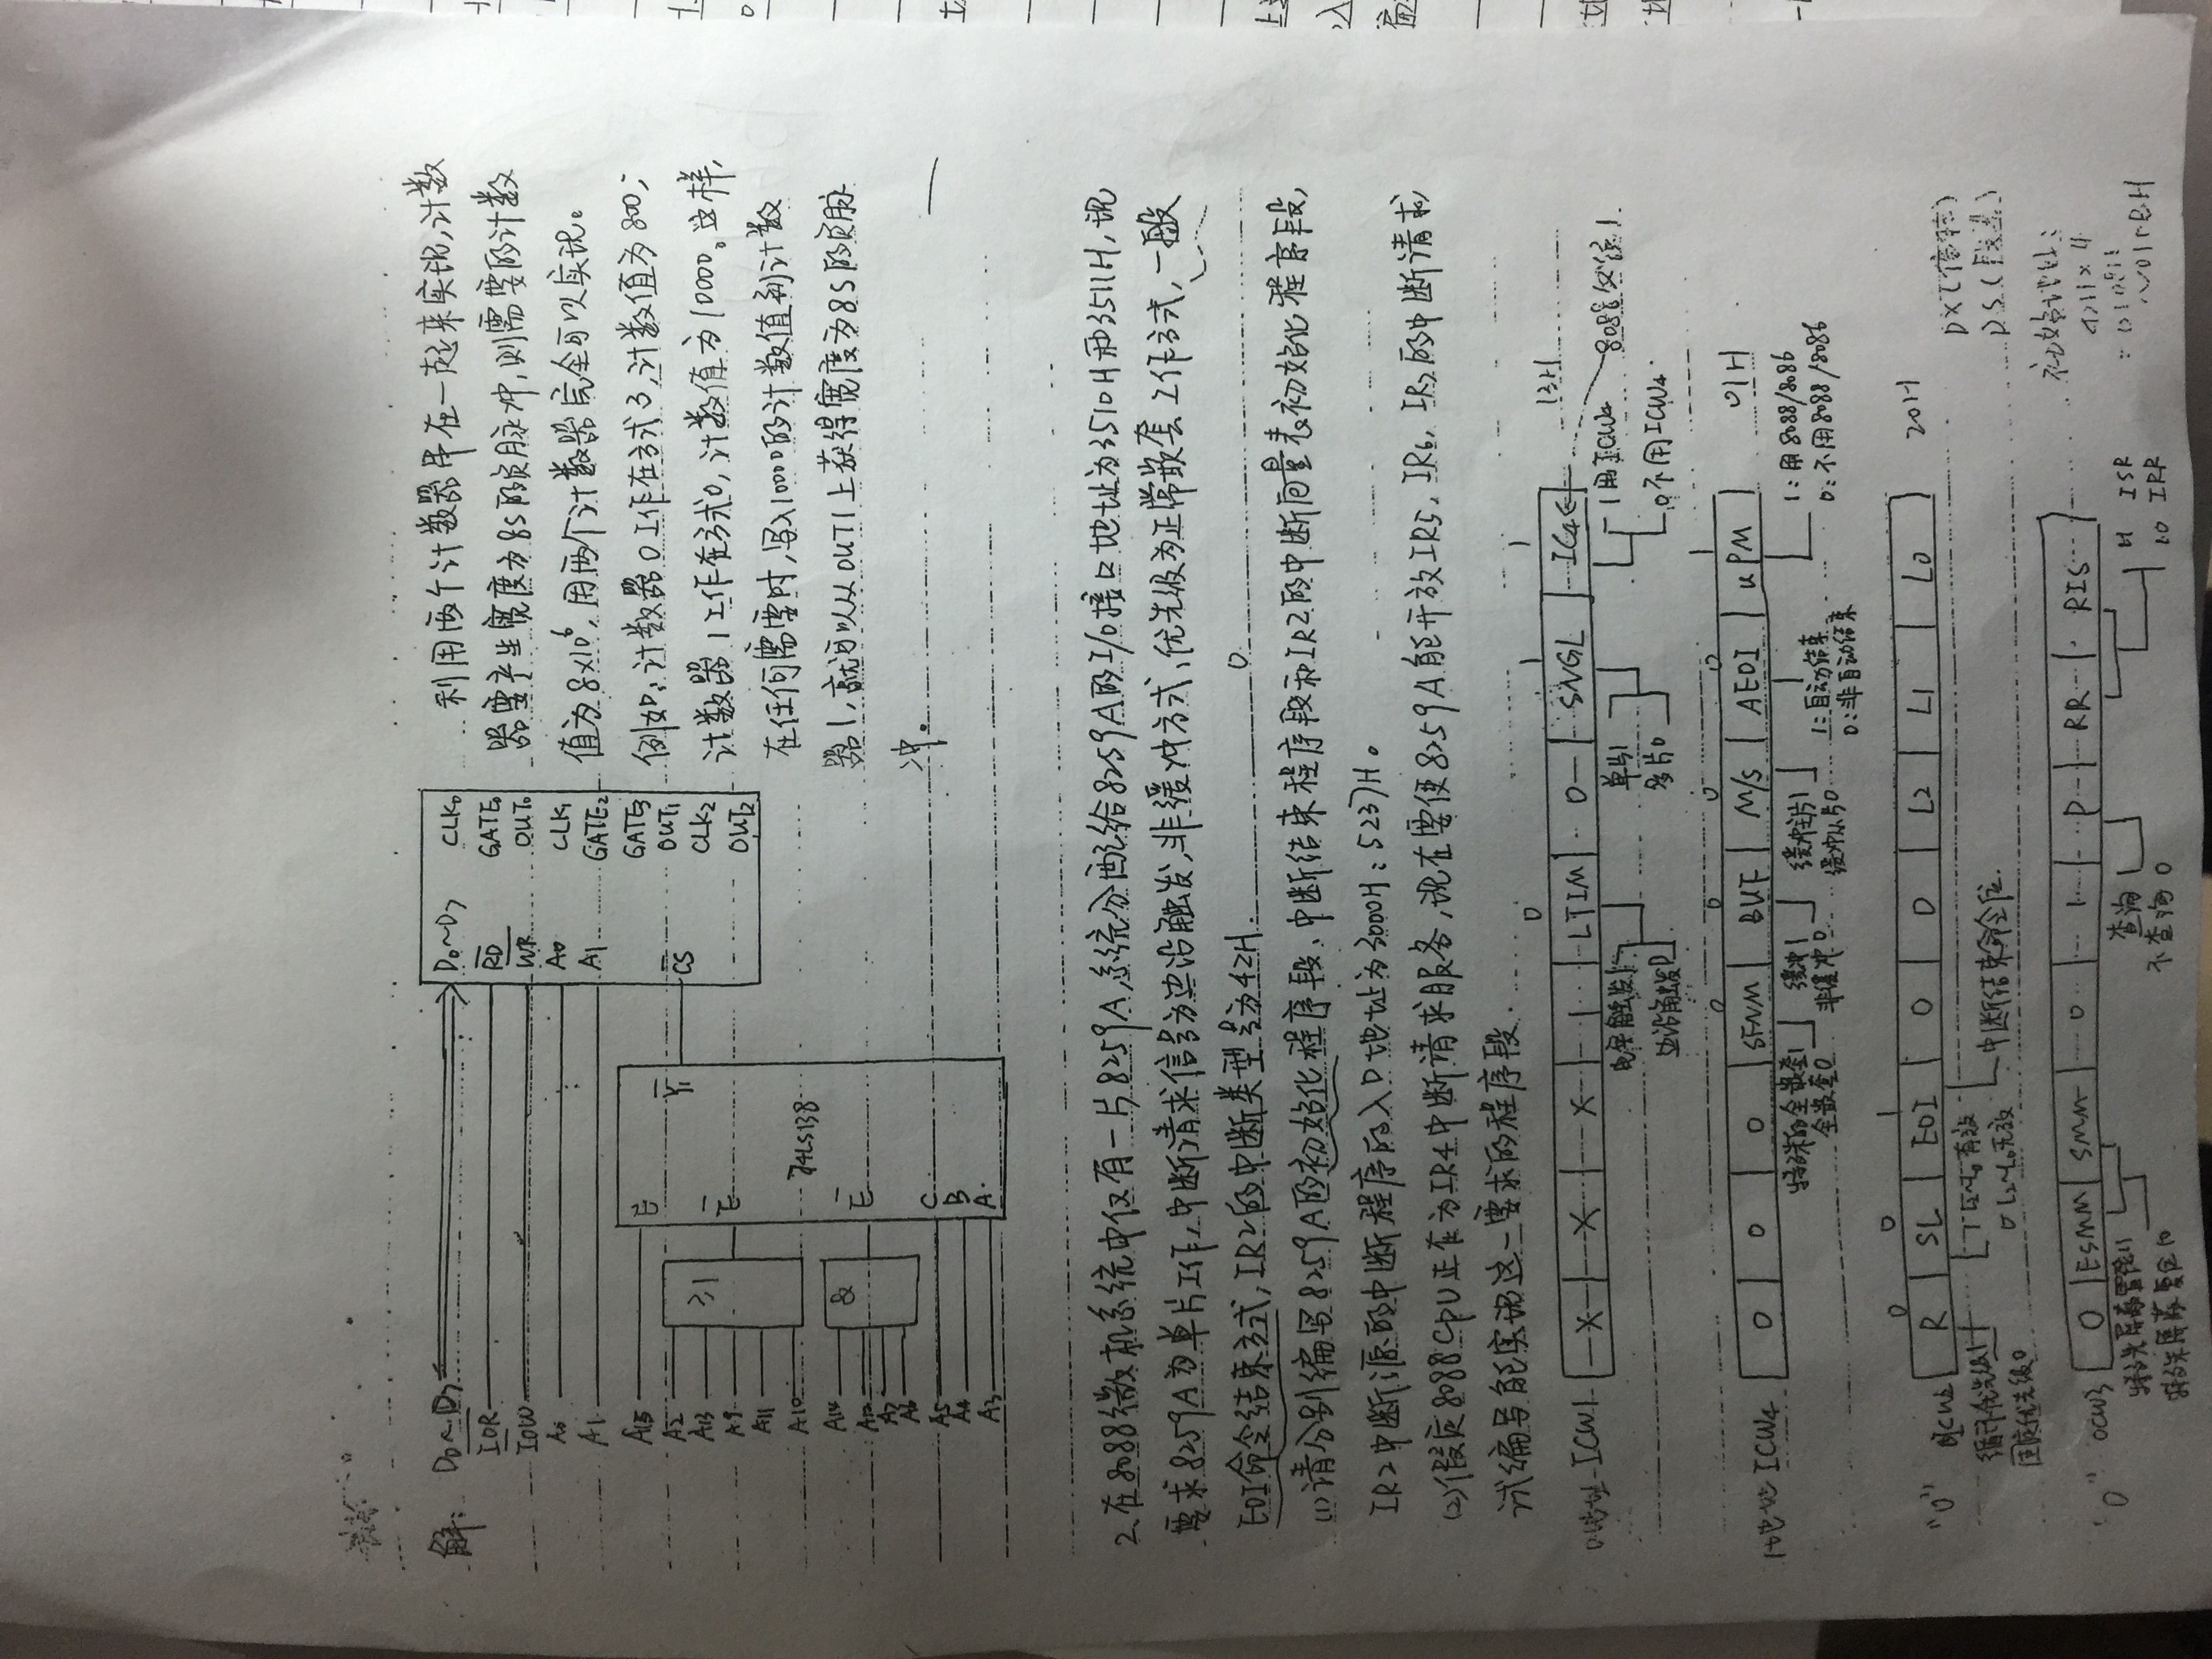 解:
D0~D7
IOR
IOW
A0
A1
A15
A2
A13
A9
A11
A10
A14
A12
A7
A6
A5
A4
A3
≥1
&
E
E
E
C
B
A
Y1
74LS138
D0~D7 CLK0
RD GATE0
WR OUT0
A0 CLK1
A1 GATE2
GATE3
CS OUT1
CLK2
OUT2
利用两个计数器串在一起来实现,计数
器要产生宽度为8S的负脉冲,则需要的计数
值为8×10⁶,用两个计数器完全可以实现。
例如:计数器0工作在方式3,计数值为800;
计数器1工作在方式0,计数值为10000。这样,
在任何需要时,写入10000的计数值到计数
器1,就可以从OUT1上获得宽度为8S的负脉
冲。
2.在8088微机系统中仅有一片8259A,系统分配给8259A的I/O接口地址为3510H和3511H,现
要求8259A为单片工作,中断请求信号为边沿触发,非缓冲方式、优先级为正常嵌套工作方式,一般
EOI命令结束方式,IR2的中断类型号为42H.
(1)请分别编写8259A的初始化程序段、中断结束程序段和IR2的中断向量表初始化程序段,
IR2中断源的中断程序的入口地址为3000H:5237H。
(2)假定8088CPU正在为IR4中断请求服务,现在要使8259A能开放IR5,IR6,IR7的中断请求
试编写能实现这一要求的程序段.
0 1 1
0地址 ICW1 X X X 1 LTIM 0 SNGL IC4 13H
电平触发1
边沿触发0
单片1
多片0
1用ICW4
0不用ICW4
8088必须1
0 0 0 0 1
1地址 ICW4 0 0 0 SFNM BUF M/S AEOI uPM 01H
特殊的全嵌套1
全嵌套0
缓冲1
非缓冲0
缓冲主片1
缓冲从片0
1:自动结束
0:非自动结束
1:用8088/8086
0:不用8088/8086
0 0 1
"0" OCW2 R SL EOI 0 0 L2 L1 L0 20H
循环优先级1
固定优先级0
1 L2~L0有效
0 L2~L0无效
中断结束命令位.
DX(偏移)
DS(段基)
"0" OCW3 0 ESMM SMM 0 1 P RR RIS
特殊屏蔽置位11
特殊屏蔽复位10
查询1
不查询0
11 ISR
10 IRR
初始地址: